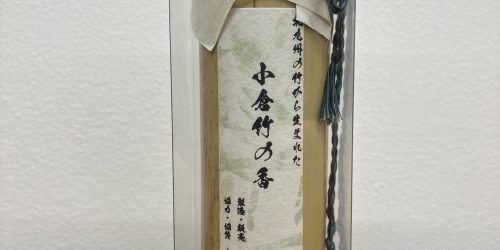 北九州の竹から生まれた
小倉竹の香
製造・販売
協力・協賛